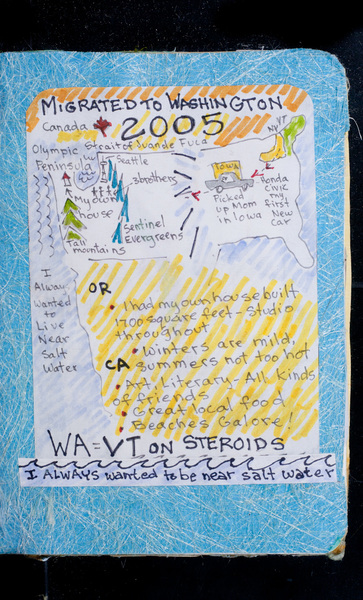 MIGRATED TO WASHINGTON
2005
Canada
Olympic
Peninsula
Strait of Juande Fuca
Seattle
3brothers
My own
house
Tall
mountains
Sentinel
Evergreens
NY
VT
IOWA
Picked
up Mom
in Iowa
Honda
Civic
my
first
New
Car
I
Always
Wanted
to
Live
Near
Salt
Water
OR
I had my own house built
1700 square feet - Studio
throughout
CA
Winters are mild,
summers not too hot
Art, Literary - All kinds
of friends
Great local food
Beaches Galore!
WA = VT ON STEROIDS
I ALWAYS wanted to be near salt water